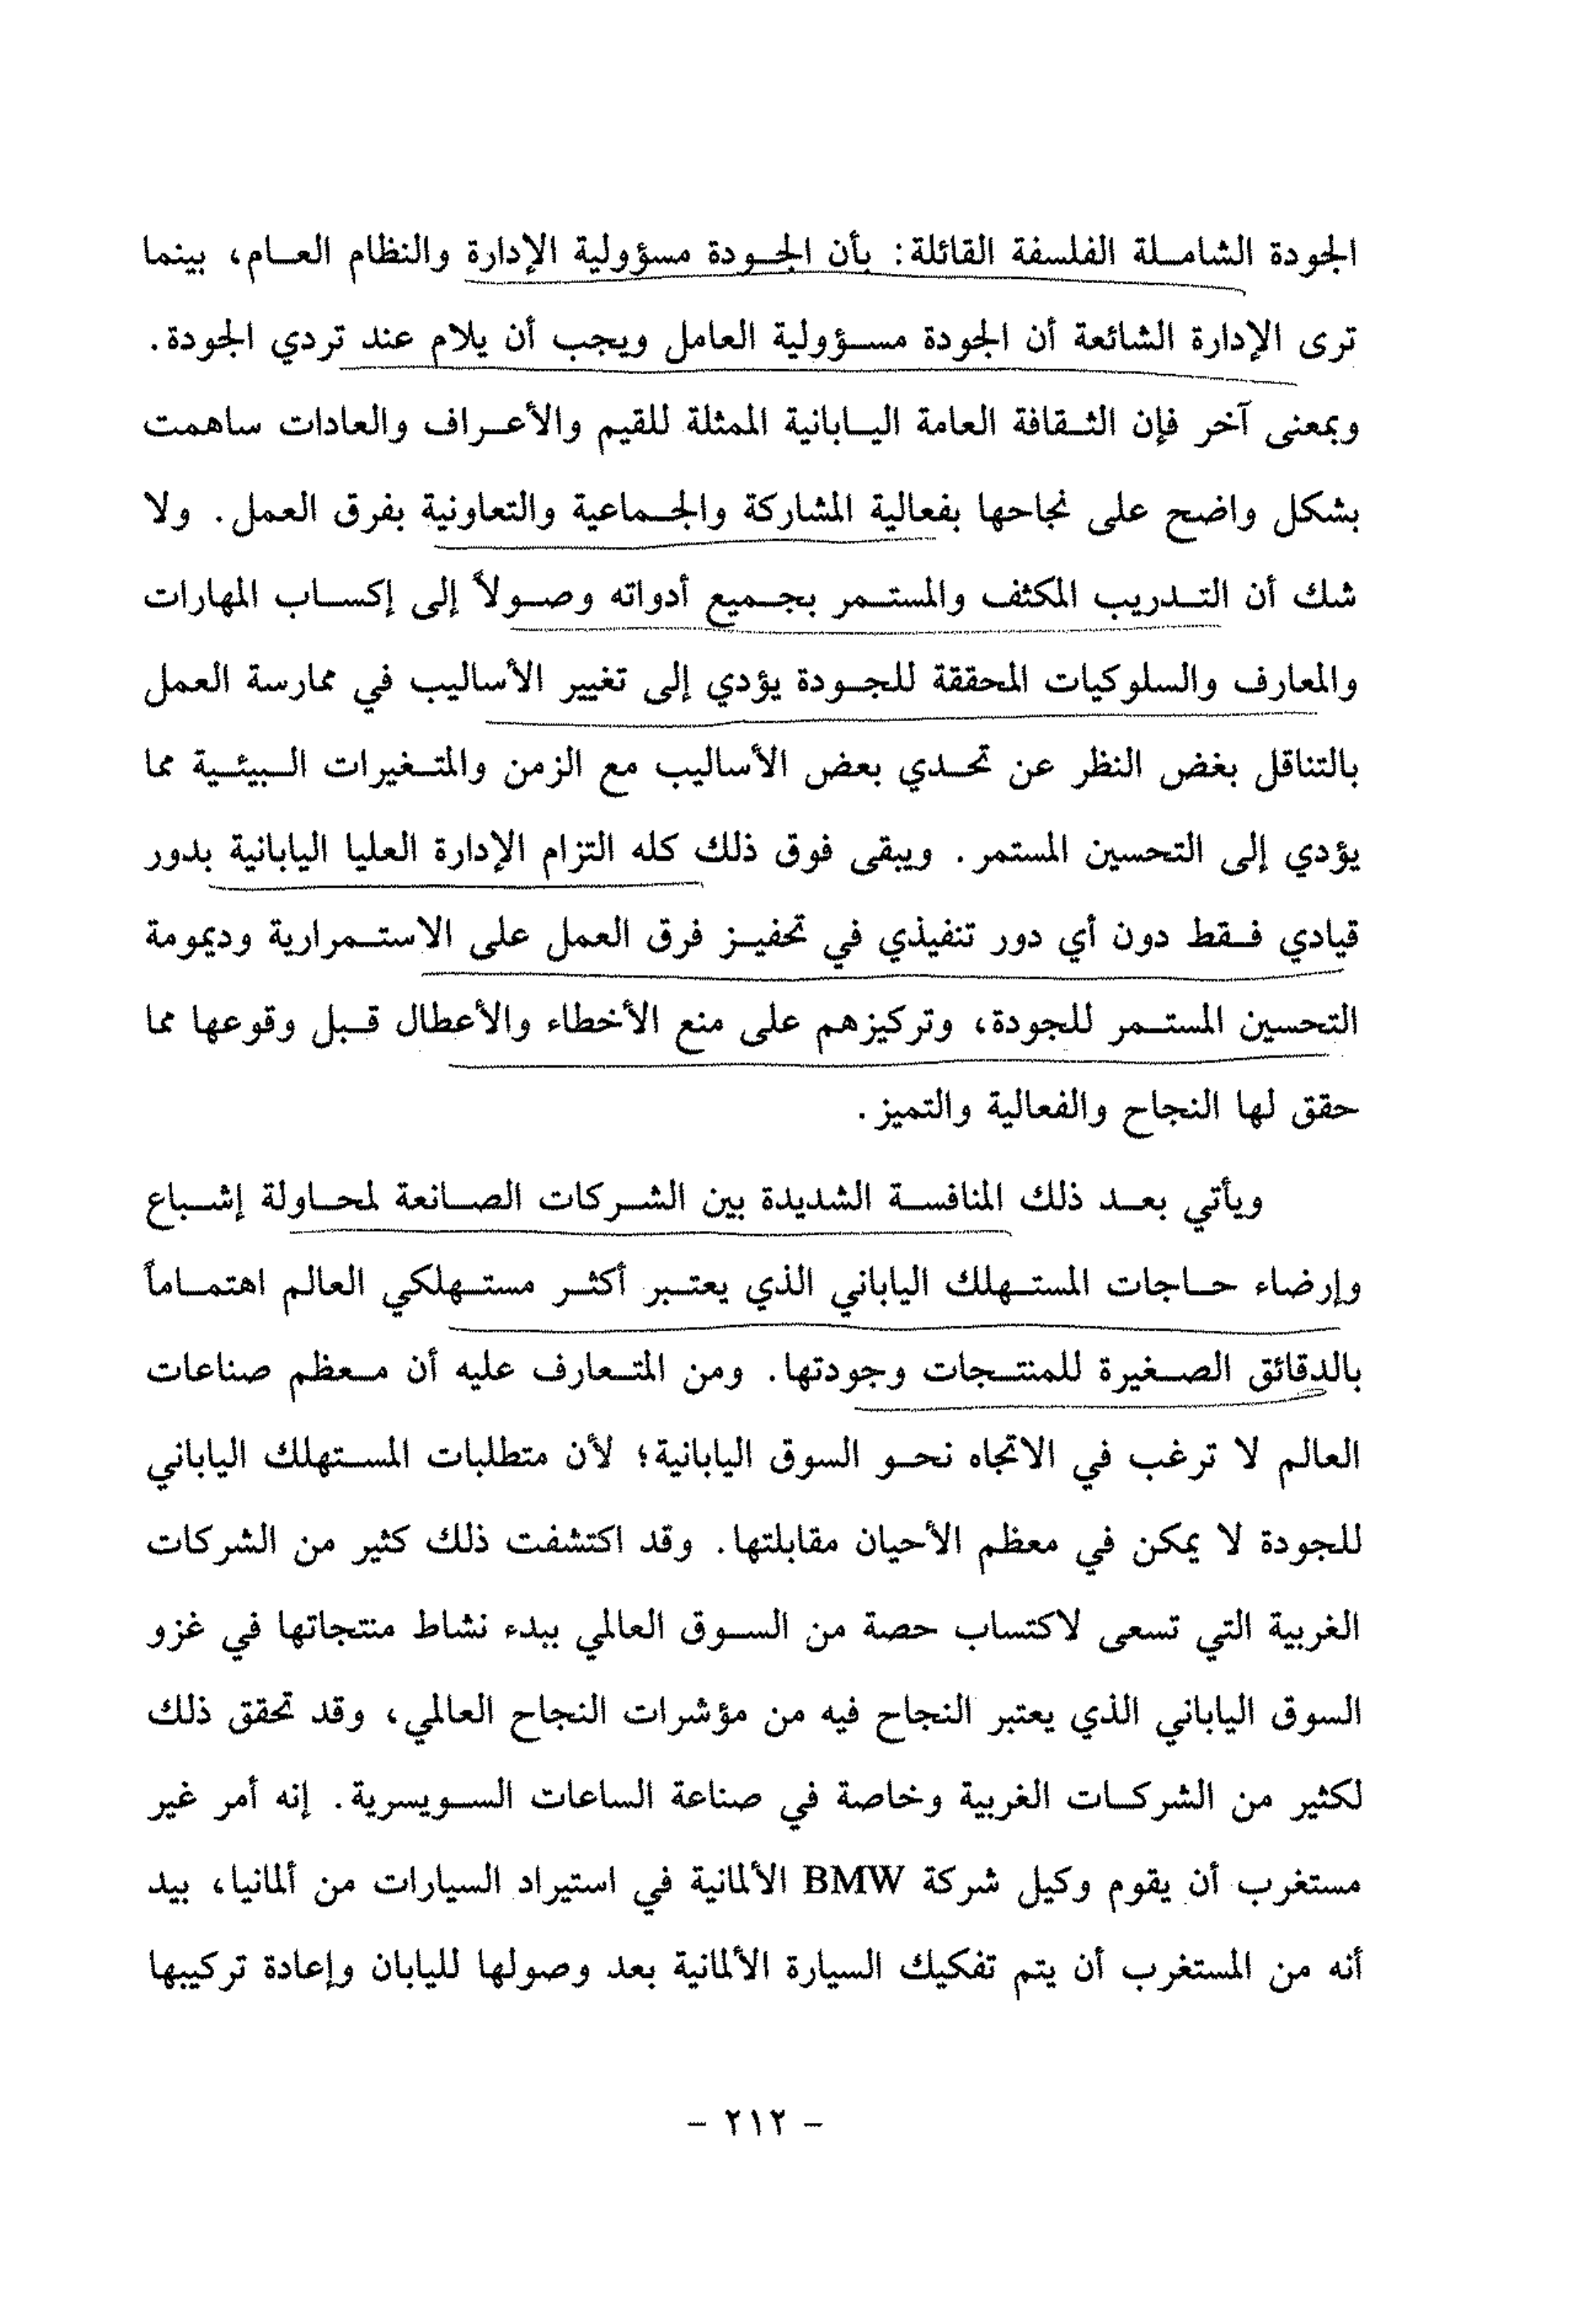 الجودة الشاملة الفلسفة القائلة: بأن الجودة مسؤولية الإدارة والنظام العام، بينما
ترى الإدارة الشائعة أن الجودة مسؤولية العامل ويجب أن يلام عند تردي الجودة.
وبمعنى آخر فإن الثقافة العامة اليابانية الممثلة للقيم والأعراف والعادات ساهمت
بشكل واضح على نجاحها بفعالية المشاركة والجماعية والتعاونية بفرق العمل. ولا
شك أن التدريب المكثف والمستمر بجميع أدواته وصولاً إلى إكساب المهارات
والمعارف والسلوكيات المحققة للجودة يؤدي إلى تغيير الأساليب في ممارسة العمل
بالتناقل بغض النظر عن تحدي بعض الأساليب مع الزمن والمتغيرات البيئية مما
يؤدي إلى التحسين المستمر. ويبقى فوق ذلك كله التزام الإدارة العليا اليابانية بدور
قيادي فقط دون أي دور تنفيذي في تحفيز فرق العمل على الاستمرارية وديمومة
التحسين المستمر للجودة، وتركيزهم على منع الأخطاء والأعطال قبل وقوعها مما
حقق لها النجاح والفعالية والتميز.
ويأتي بعد ذلك المنافسة الشديدة بين الشركات الصانعة لمحاولة إشباع
وإرضاء حاجات المستهلك الياباني الذي يعتبر أكثر مستهلكي العالم اهتماماً
بالدقائق الصغيرة للمنتجات وجودتها. ومن المتعارف عليه أن معظم صناعات
العالم لا ترغب في الاتجاه نحو السوق اليابانية؛ لأن متطلبات المستهلك الياباني
للجودة لا يمكن في معظم الأحيان مقابلتها. وقد اكتشفت ذلك كثير من الشركات
الغربية التي تسعى لاكتساب حصة من السوق العالمي ببدء نشاط منتجاتها في غزو
السوق الياباني الذي يعتبر النجاح فيه من مؤشرات النجاح العالمي، وقد تحقق ذلك
لكثير من الشركات الغربية وخاصة في صناعة الساعات السويسرية. إنه أمر غير
مستغرب أن يقوم وكيل شركة BMW الألمانية في استيراد السيارات من ألمانيا، بيد
أنه من المستغرب أن يتم تفكيك السيارة الألمانية بعد وصولها لليابان وإعادة تركيبها
- ٢١٢ -